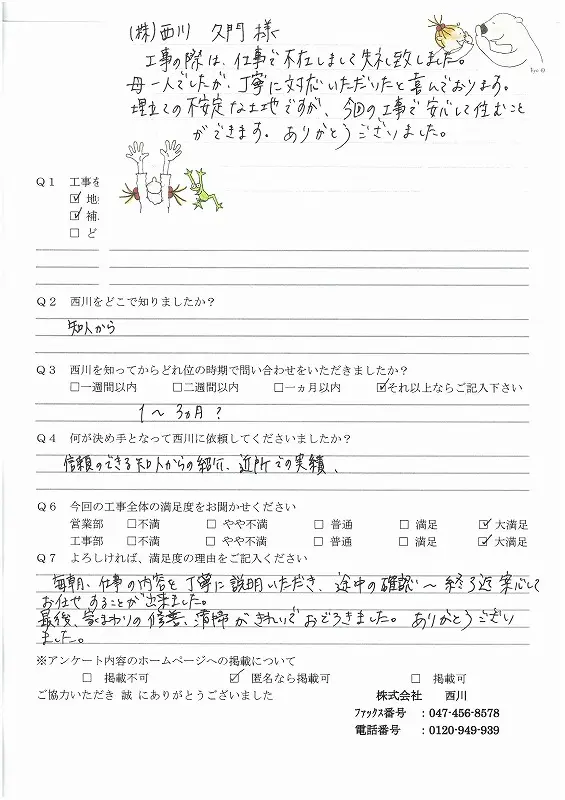 (株)西川 久門様
工事の際は、仕事で不在しまして失礼致しました。
母一人でしたが、丁寧に対応いただいたと喜んでおります。
埋立ての不安定な土地ですが、今回の工事で安心して住むこと
ができます。ありがとうございました。
Q1 工事を
☑ 地
☑ 補
□ ど
Q2 西川をどこで知りましたか？
知人から
Q3 西川を知ってからどれ位の時期で問い合わせをいただきましたか？
□一週間以内 □二週間以内 □一ヵ月以内 ☑それ以上ならご記入下さい
1〜3ヵ月？
Q4 何が決め手となって西川に依頼してくださいましたか？
信頼のできる知人からの紹介、近所での実績、
Q6 今回の工事全体の満足度をお聞かせください
営業部 □不満 □やや不満 □普通 □満足 ☑大満足
工事部 □不満 □やや不満 □普通 □満足 ☑大満足
Q7 よろしければ、満足度の理由をご記入ください
毎朝、仕事の内容を丁寧に説明いただき、途中の確認〜終了迄安心して
お任せすることが出来ました。
最後、家まわりの修善、清掃がきれいでおどろきました。ありがとうござい
ました。
※アンケート内容のホームページへの掲載について
□ 掲載不可 ☑ 匿名なら掲載可 □ 掲載可
ご協力いただき 誠 にありがとうございました 株式会社 西川
ﾌｧｯｸｽ番号 ：047-456-8578
電話番号 ：0120-949-939